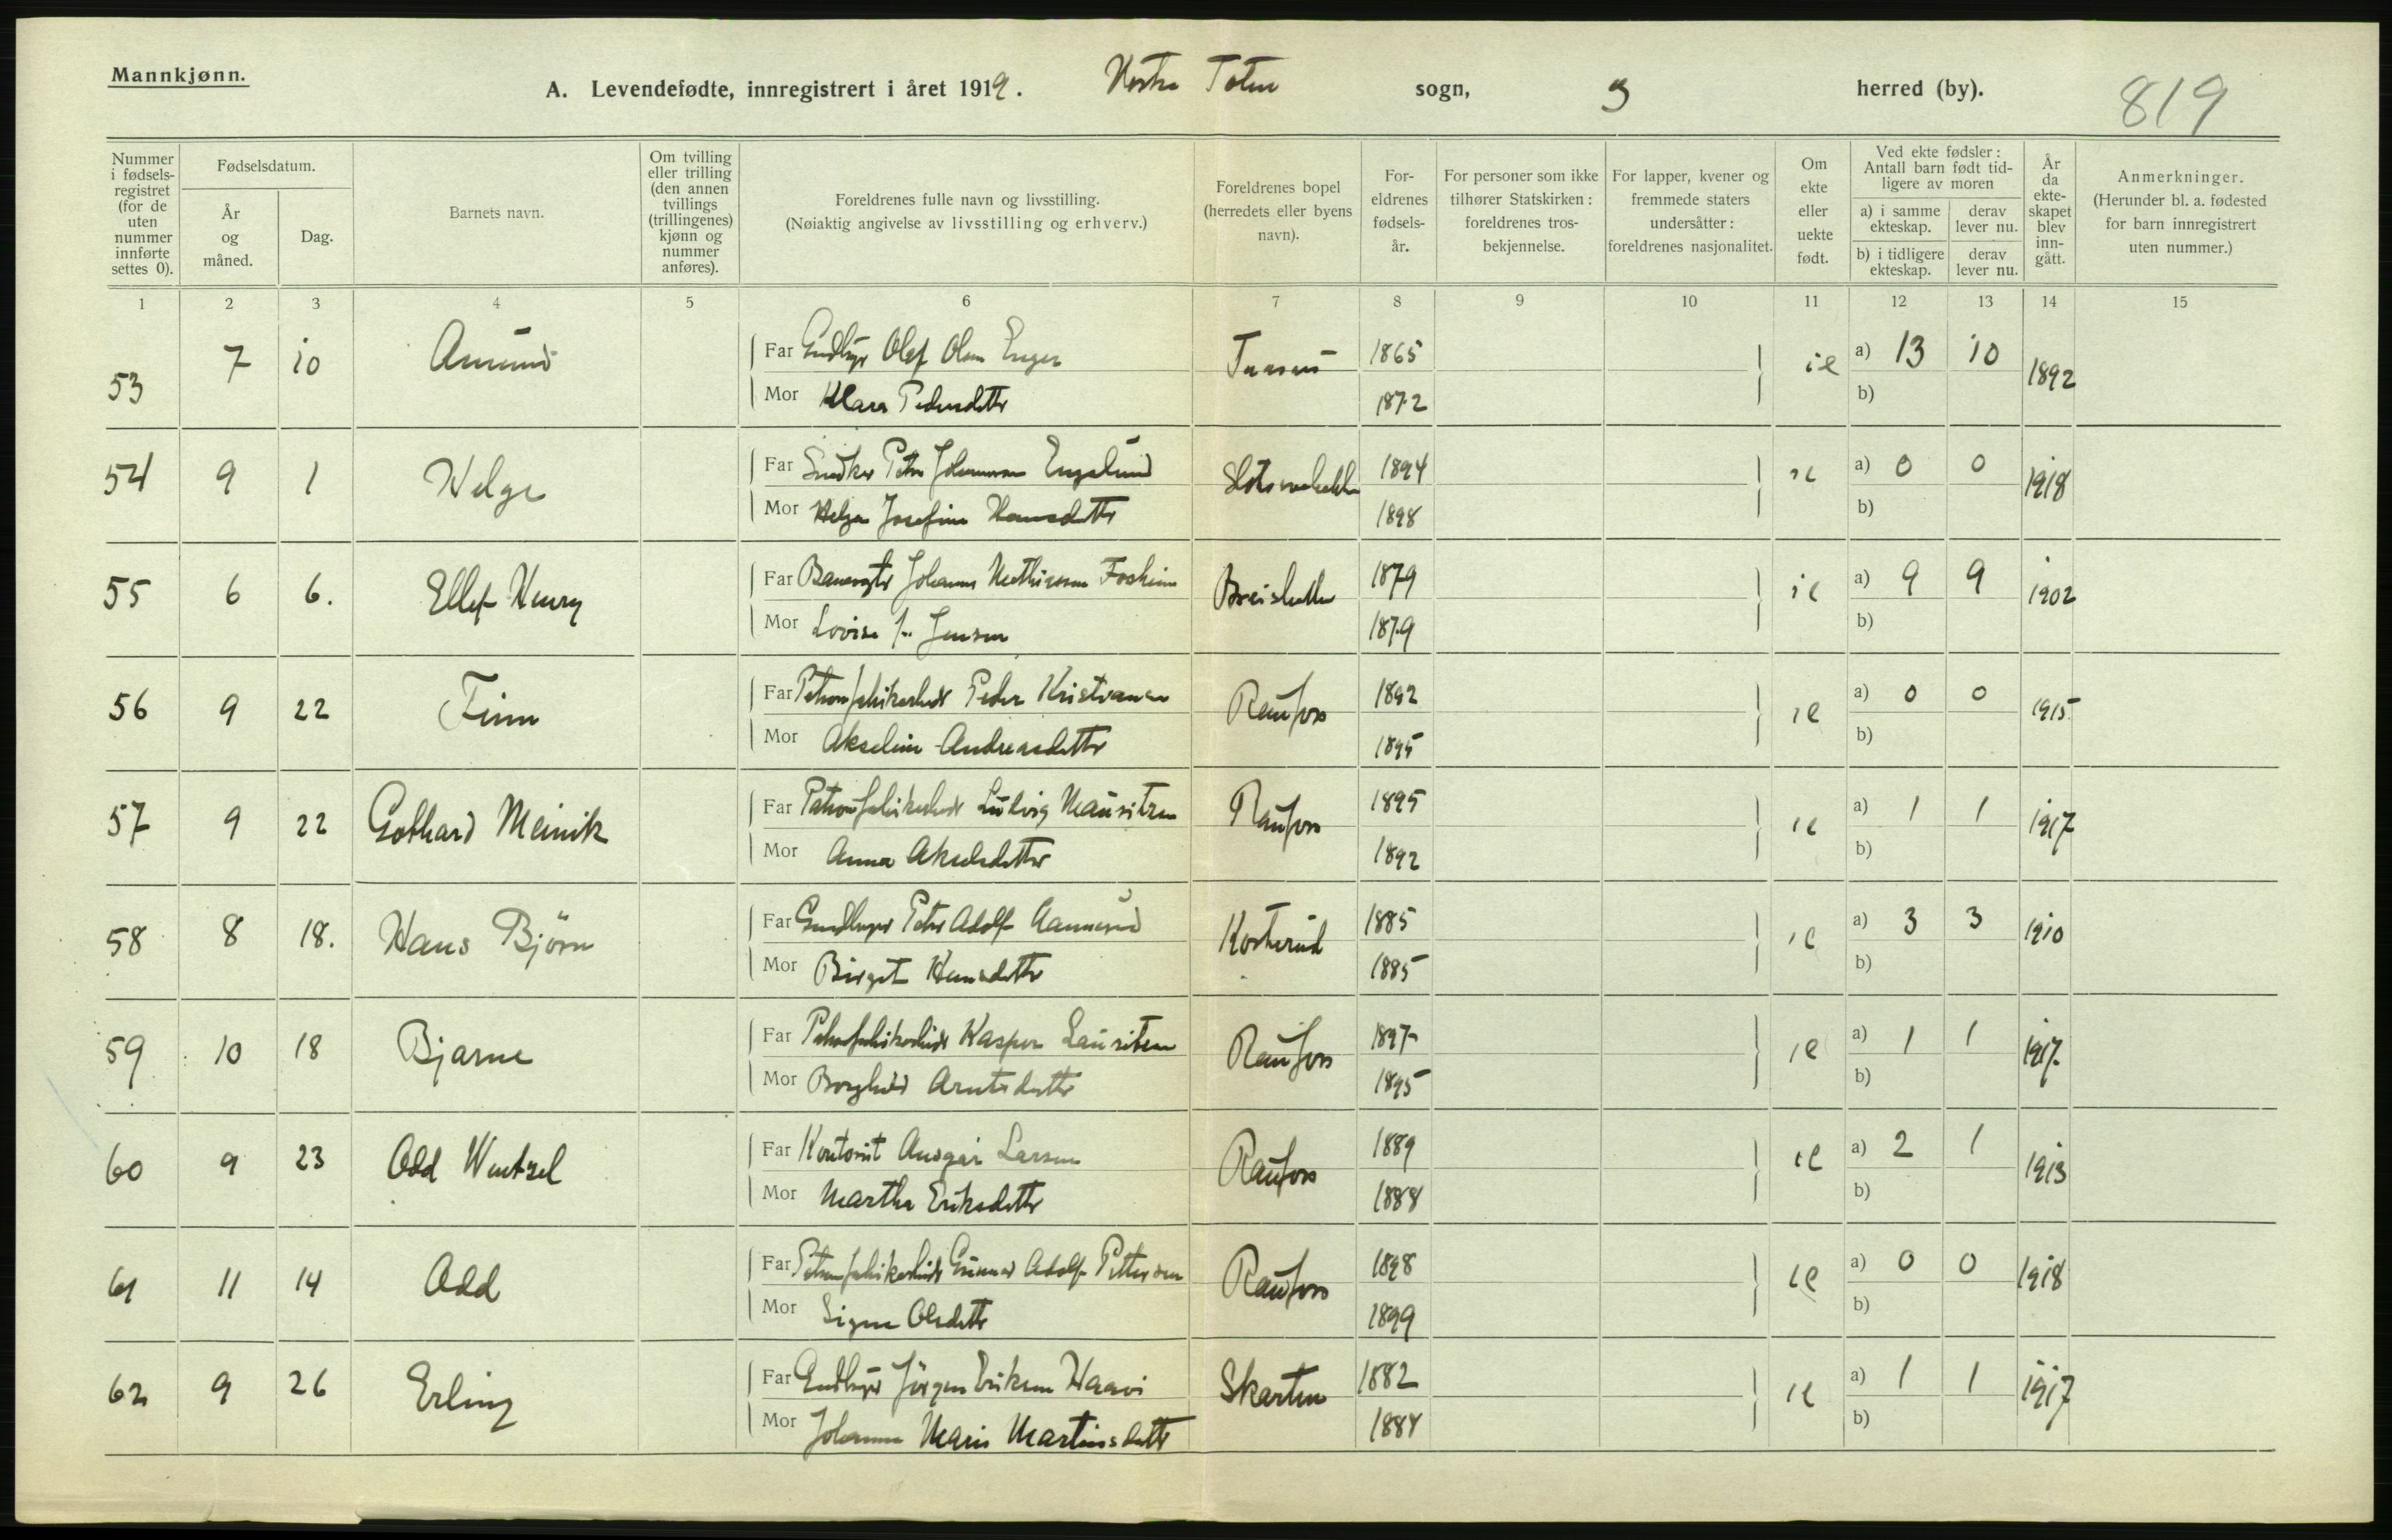 Mannkjønn.
A. Levendefødte, innregistrert i året 1919. Vestre Toten sogn, herred (by). 819
Nummer i fødsels-registret (for de uten nummer innførte settes 0).
Fødselsdatum.
År og måned.
Dag.
Barnets navn.
Om tvilling eller trilling (den annen tvillings (trillingenes) kjønn og nummer anføres).
Foreldrenes fulle navn og livsstilling.
(Nøiaktig angivelse av livsstilling og erhverv.)
Foreldrenes bopel (herredets eller byens navn).
For-eldrenes fødsels-år.
For personer som ikke tilhører Statskirken: foreldrenes tros-bekjennelse.
For lapper, kvener og fremmede staters undersåtter: foreldrenes nasjonalitet.
Om ekte eller uekte født.
Ved ekte fødsler:
Antall barn født tid-ligere av moren
a) i samme ekteskap.
derav lever nu.
b) i tidligere ekteskap.
derav lever nu.
År da ekte-skapet blev inn-gått.
Anmerkninger.
(Herunder bl. a. fødested for barn innregistrert uten nummer.)
1 2 3 4 5 6 7 8 9 10 11 12 13 14 15
53 7 10 Amund Far Gudbr Olaf Olsen Enger 1865 a) 13 10 1892
Mor Klara Pedersdatter 1872 b)
54 9 1 Helge Far Snedker Peter Johannessen Engelund 1894 a) 0 0 1918
Mor Helga Josefine Hansdatter 1898 b)
55 6 6. Ellef Henry Far Banevogter Johannes Mathiassen Fosheim 1879 a) 9 9 1902
Mor Lovise f. Jensen 1879 b)
56 9 22 Finn Far Patronfabrikarbeider Peder Kristiansen Raufoss 1892 a) 0 0 1915
Mor Akseline Andreasdatter 1895 b)
57 9 22 Gothard Meinik Far Patronfabrikarbeider Ludvig Mauritzen Raufoss 1895 a) 1 1 1917
Mor Anna Akselsdatter 1892 b)
58 8 18. Hans Björn Far Peter Adolf Kosterud 1885 a) 3 3 1910
Mor Birgit Hansdatter 1885 b)
59 10 18 Bjarne Far Patronfabrikarbeider Kasper Lauritsen Raufoss 1897 a) 1 1 1917
Mor Borghild Arntsdatter 1895 b)
60 9 23 Odd Wentzel Far Kontorist Ansgar Larsen Raufoss 1889 a) 2 1 1913
Mor Martha Eriksdatter 1888 b)
61 11 14 Odd Far Patronfabrikarbeider Gunnar Adolf Pettersen Raufoss 1898 a) 0 0 1918
Mor Signe Olsdatter 1899 b)
62 9 26 Erling Far Jörgen Eriksen Skarten 1882 a) 1 1 1917
Mor Johanne Marie Martinsdatter 1884 b)